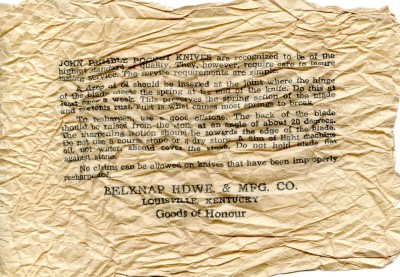 JOHN PRIMBLE POCKET KNIVES are recognized to be of the
highest standard of quality. They, however, require care to insure
lasting service. The service requirements are simple.
A drop of oil should be inserted at the joint where the hinge
of the blade meets the spring at the end of the knife. Do this at
least once a week. This preserves the spring action of the blade
and prevents rust. Rust is what causes most springs to break.
To resharpen, use a good oilstone. The back of the blade
should be raised from the stone at an angle of about 20 degrees.
The sharpening motion should be towards the edge of the blade.
Do not use a coarse stone or a dry stone. A film of light machine
oil, not water, should cover the stone. Do not hold blade flat
against stone.
No claim can be allowed on knives that have been improperly
resharpened.
BELKNAP HDWE. & MFG. CO.
LOUISVILLE, KENTUCKY
Goods of Honour